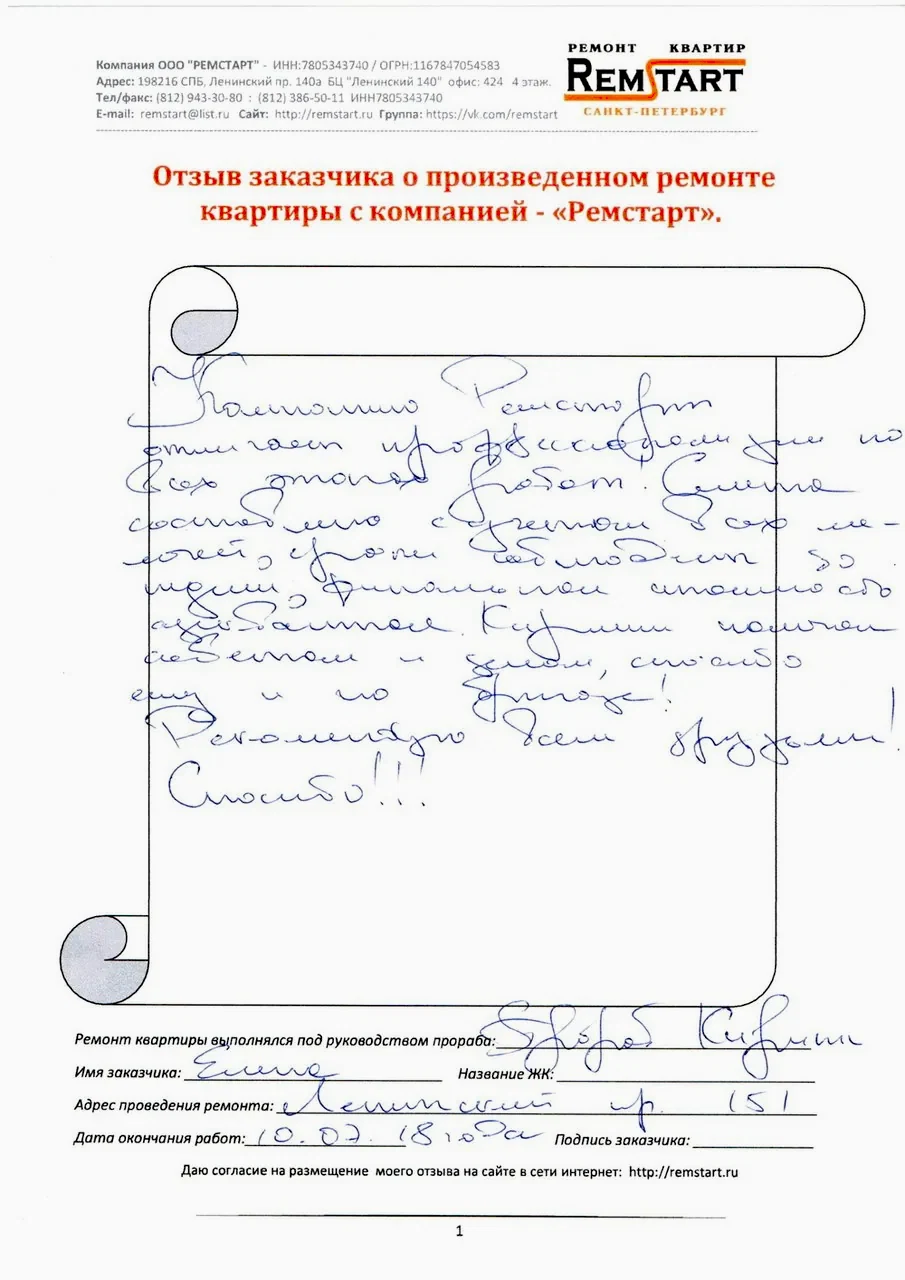 Компания ООО "РЕМСТАРТ" - ИНН:7805343740 / ОГРН:1167847054583
Адрес: 198216 СПБ, Ленинский пр. 140а БЦ "Ленинский 140" офис: 424 4 этаж.
Тел/факс: (812) 943-30-80 : (812) 386-50-11 ИНН7805343740
E-mail: remstart@list.ru Сайт: http://remstart.ru Группа: https://vk.com/remstart
РЕМОНТ КВАРТИР
REMSTART
САНКТ-ПЕТЕРБУРГ
Отзыв заказчика о произведенном ремонте
квартиры с компанией - «Ремстарт».
Компанию Ремстарт
отличает профессионализм по
всех этапах работ! Смета
составлена с учетом всех ме-
лочей, сроки соблюдены
финансовая
Кирилл помогал
советом и делом, спасибо
ему и по бригаде!
Рекомендую всем друзьям!
Спасибо!!!
Ремонт квартиры выполнялся под руководством прораба: Прораб Кирилл
Имя заказчика: Елена Название ЖК:
Адрес проведения ремонта: Ленинский пр. 151
Дата окончания работ: 10.07.18 года Подпись заказчика:
Даю согласие на размещение моего отзыва на сайте в сети интернет: http://remstart.ru
1